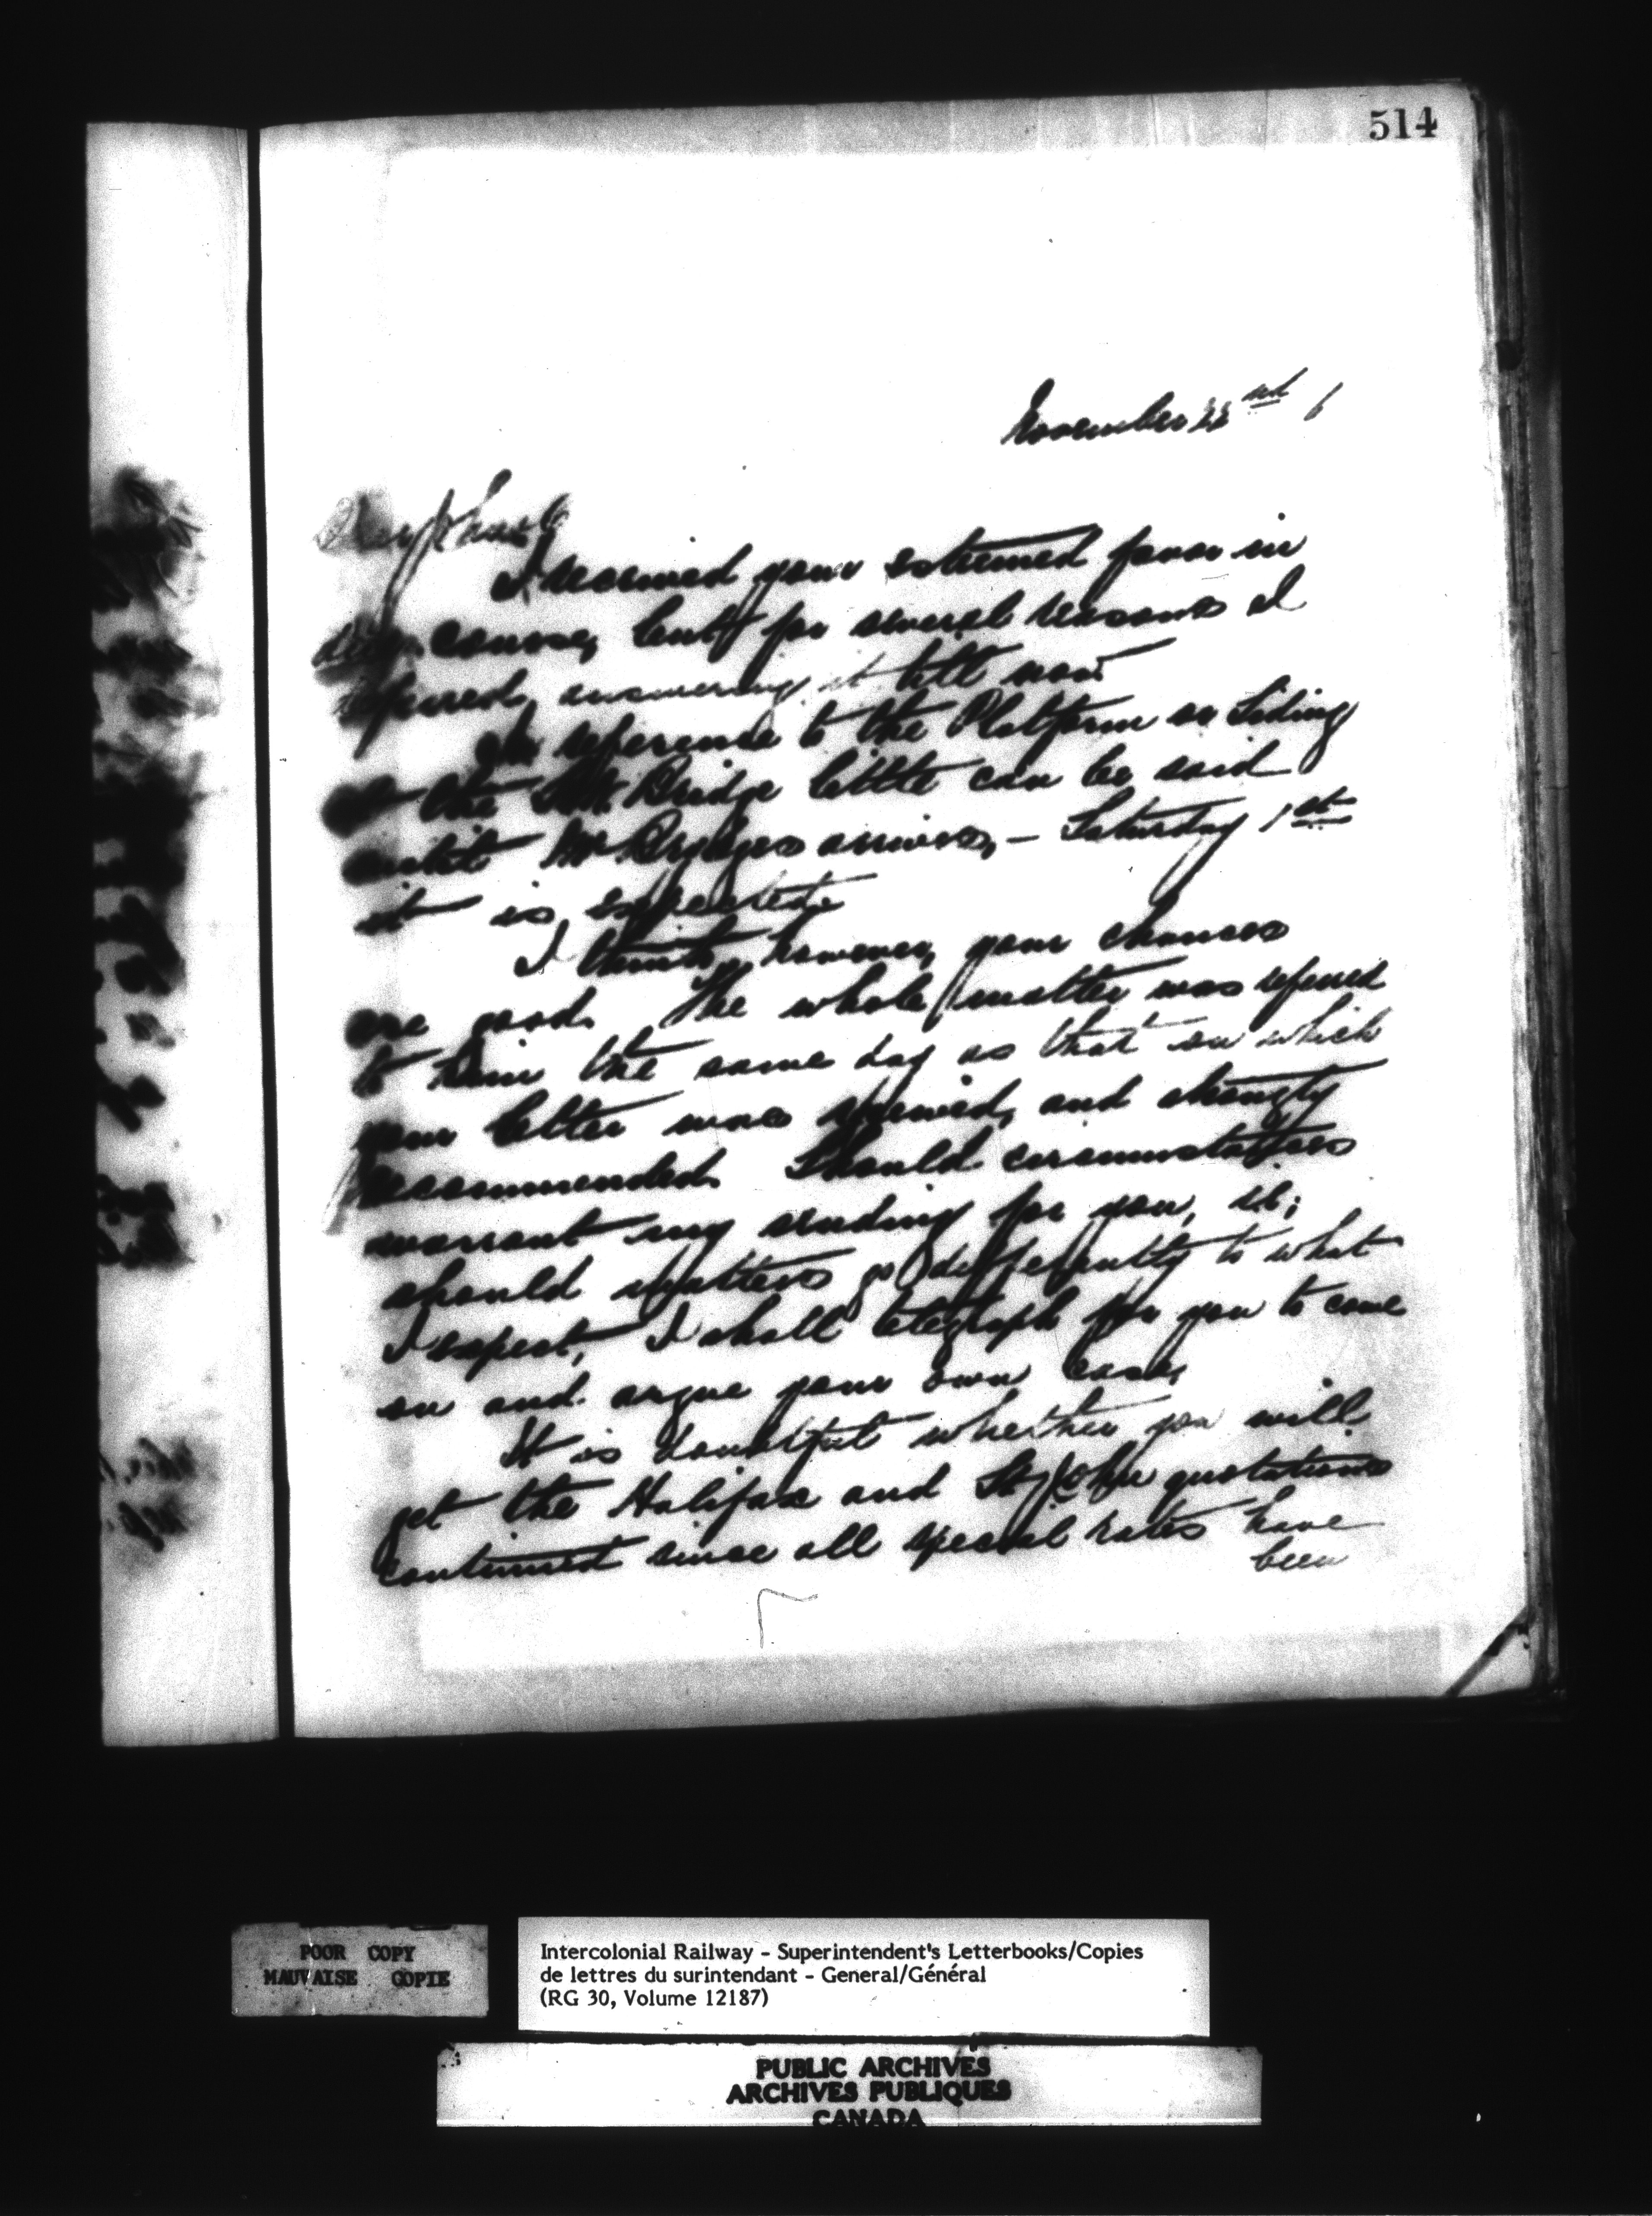 514
November 22nd 6
Dear
I received your esteemed favor in
due course, but for several reasons I
deferred answering it till now
In reference to the Platform or Siding
at the Bridge little can be said
until Mr Brydges arrives, – Saturday 1st
it is expected.
I think, however, your chances
are good. The whole matter was referred
to him the same day as that on which
your letter was received, and strongly
recommended. Should circumstances
warrant my sending for you, i.e;
should matters go differently to what
I expect, I shall telegraph for you to come
on and argue your own case.
It is doubtful whether you will
get the Halifax and St John quotations
continued since all special rates have
been
POOR COPY
MAUVAISE COPIE
Intercolonial Railway - Superintendent's Letterbooks/Copies
de lettres du surintendant - General/Général
(RG 30, Volume 12187)
PUBLIC ARCHIVES
ARCHIVES PUBLIQUES
CANADA